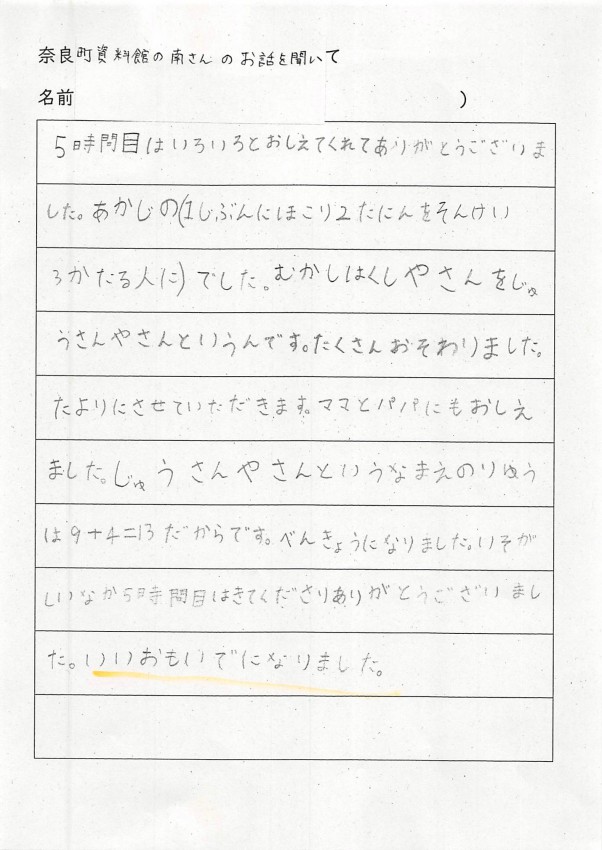 奈良町資料館の南さんのお話を聞いて
名前 )
5時間目はいろいろとおしえてくれてありがとうございま
した。あかじの(1じぶんにほこり2たにんをそんけい
3かたる人に)でした。むかしはくしやさんをじゅ
うさんやさんというんです。たくさんおそわりました。
たよりにさせていただきます。ママとパパにもおしえ
ました。じゅうさんやさんというなまえのりゆう
は9+4=13だからです。べんきょうになりました。いそが
しいなから5時間目はきてくださりありがとうございまし
た。いいおもいでになりました。